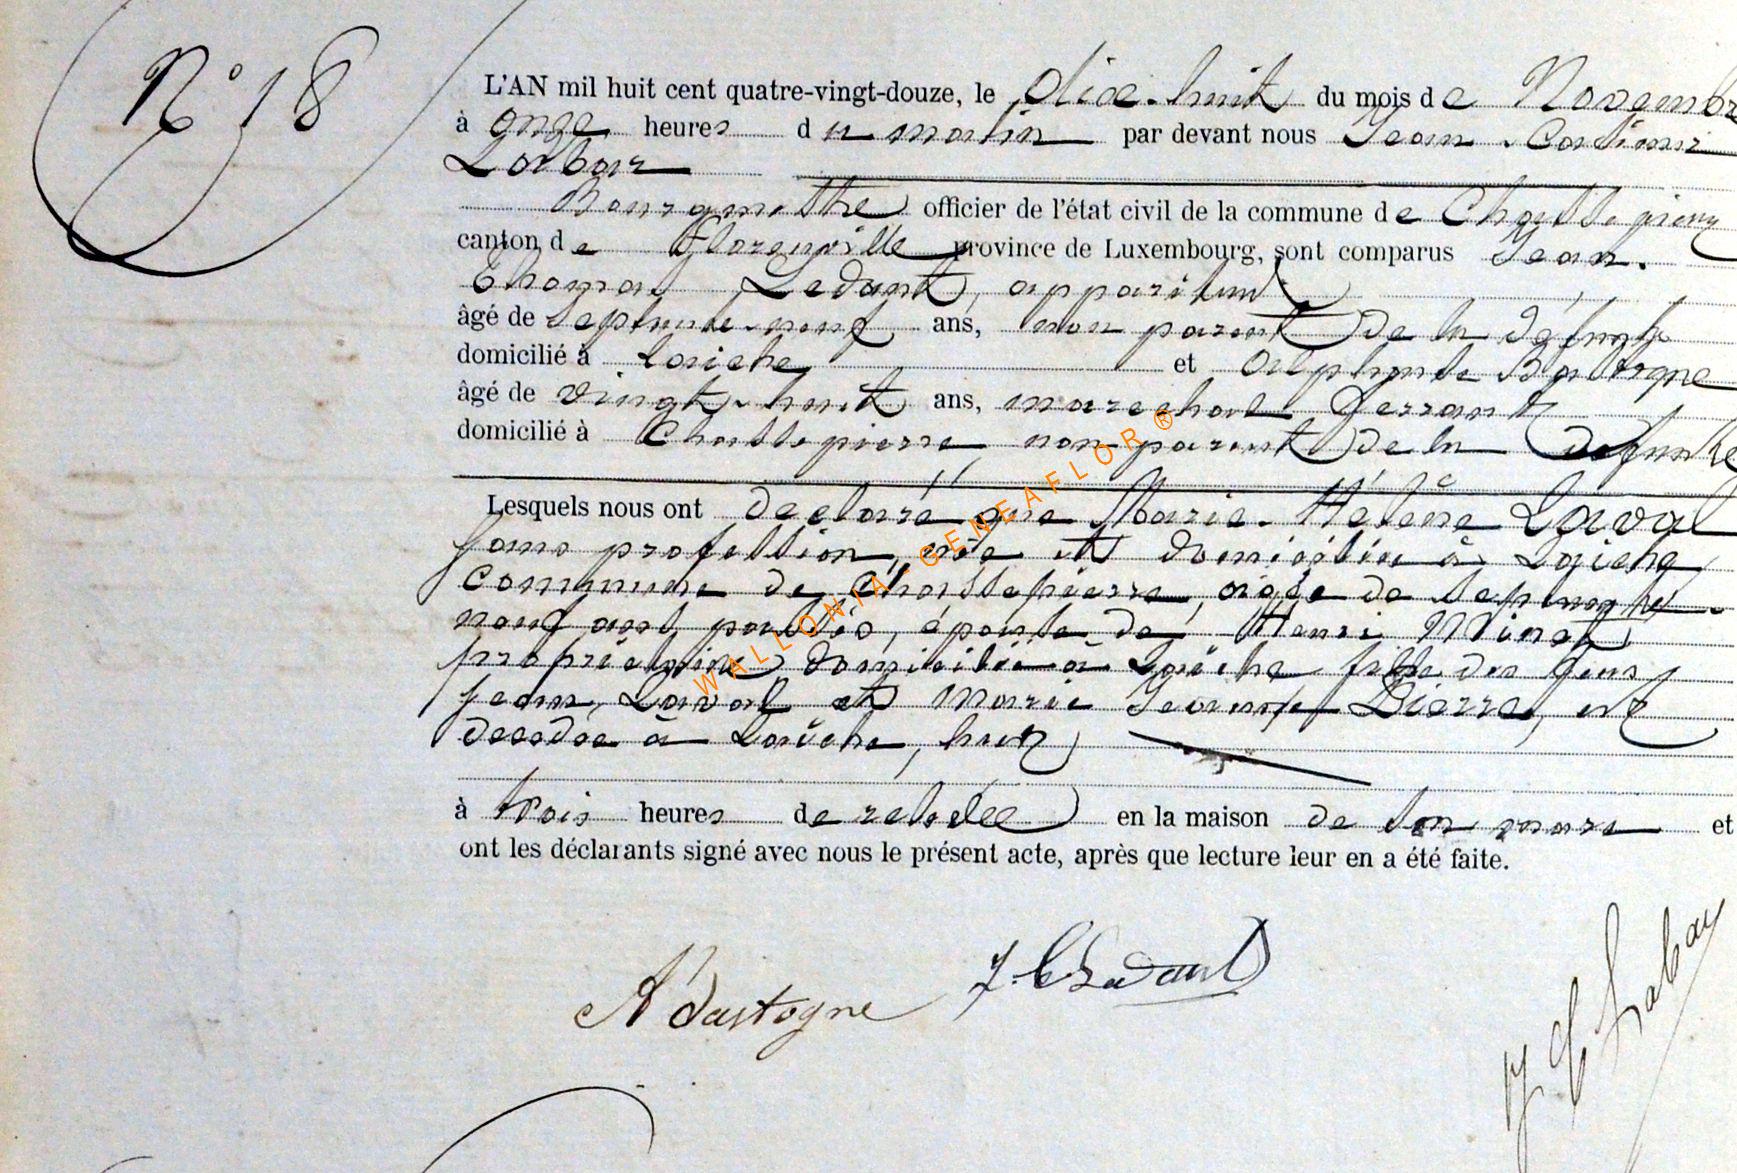 N° 18
L'AN mil huit cent quatre-vingt-douze, le dixe-huit du mois de Novembre
à onze heures du matin par devant nous Jean-Casimir
Labbar
Bourgmestre officier de l'état civil de la commune de Chassepierre
canton de Florenville province de Luxembourg, sont comparus Jean-
Thomas Ledant, appariteur
âgé de septente-neuf ans, non parent de la défunte
domicilié à Laiche et Alphonse Bastogne
âgé de vingt-huit ans, marechal ferrant
domicilié à Chassepierre non parent de la defunte
Lesquels nous ont declaré que Marie-Hélène Laval
sans profession, née et domiciliée à Laiche
commune de Chassepierre, agée de septente-
neuf ans passées, épouse de Henri Minet
propriétaire domicilié à Laiche fille des feus
Jean Laval et Marie Jeanne Pierre, est
decedee à Laiche, hier
à trois heures de relevée en la maison de son mari et
ont les déclarants signé avec nous le présent acte, après que lecture leur en a été faite.
WALLONIA-GENEAFLOR®
A Bastogne J. T. Ledant
J C Labay